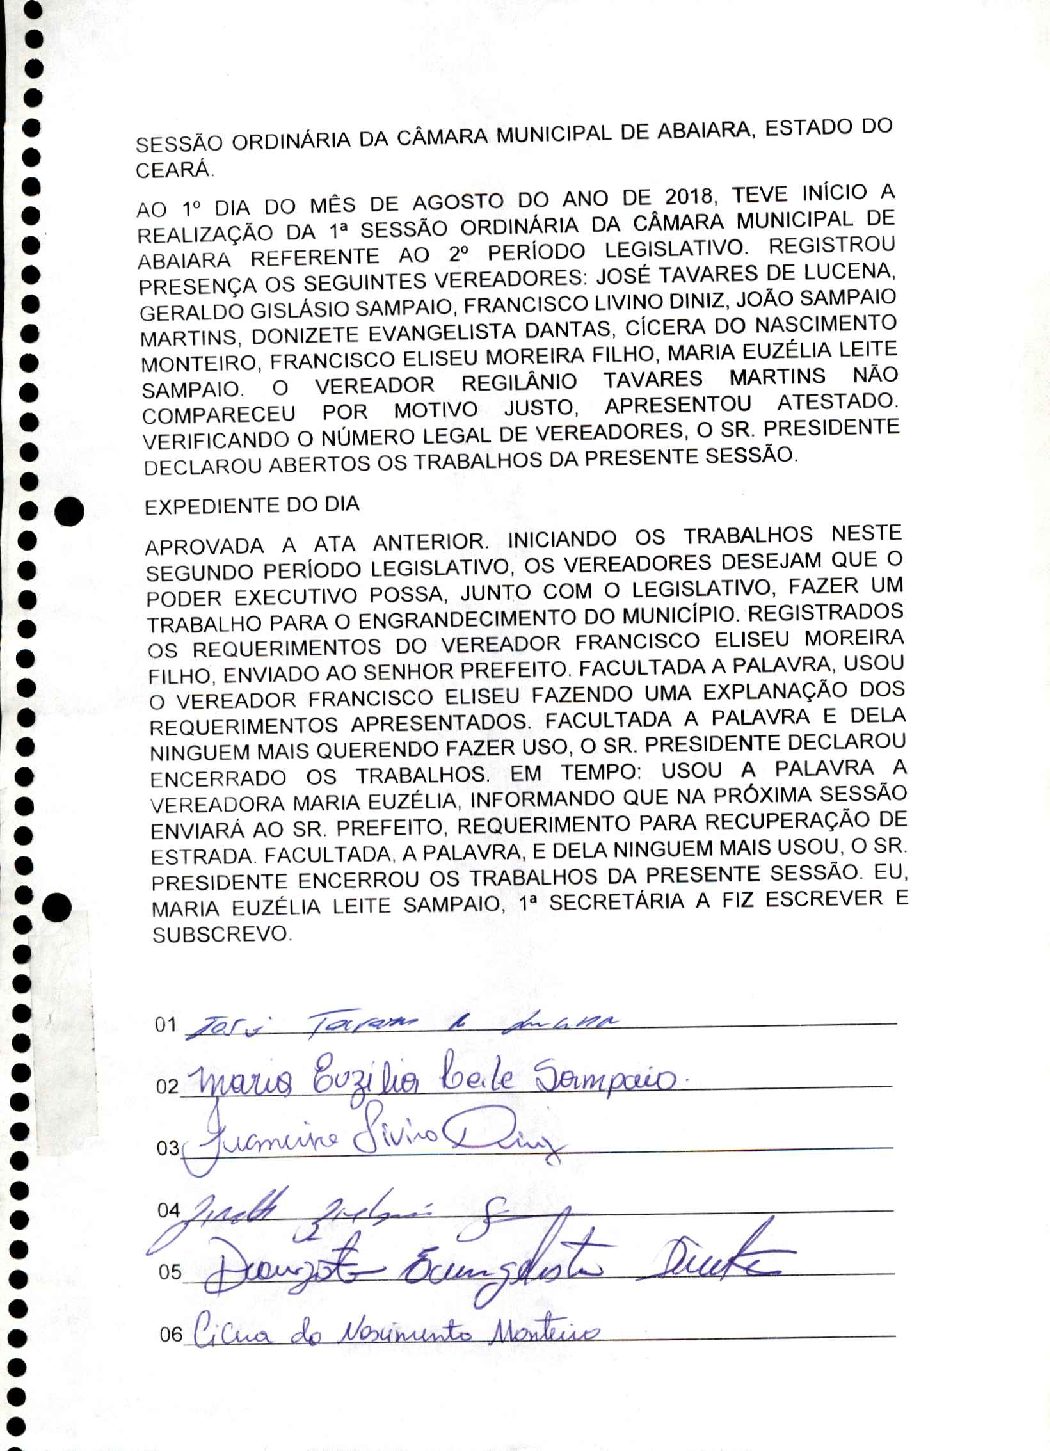 SESSÃO ORDINÁRIA DA CÂMARA MUNICIPAL DE ABAIARA, ESTADO DO
CEARÁ.
AO 1º DIA DO MÊS DE AGOSTO DO ANO DE 2018, TEVE INÍCIO A
REALIZAÇÃO DA 1ª SESSÃO ORDINÁRIA DA CÂMARA MUNICIPAL DE
ABAIARA REFERENTE AO 2º PERÍODO LEGISLATIVO. REGISTROU
PRESENÇA OS SEGUINTES VEREADORES: JOSÉ TAVARES DE LUCENA,
GERALDO GISLÁSIO SAMPAIO, FRANCISCO LIVINO DINIZ, JOÃO SAMPAIO
MARTINS, DONIZETE EVANGELISTA DANTAS, CÍCERA DO NASCIMENTO
MONTEIRO, FRANCISCO ELISEU MOREIRA FILHO, MARIA EUZÉLIA LEITE
SAMPAIO. O VEREADOR REGILÂNIO TAVARES MARTINS NÃO
COMPARECEU POR MOTIVO JUSTO, APRESENTOU ATESTADO.
VERIFICANDO O NÚMERO LEGAL DE VEREADORES, O SR. PRESIDENTE
DECLAROU ABERTOS OS TRABALHOS DA PRESENTE SESSÃO.
EXPEDIENTE DO DIA
APROVADA A ATA ANTERIOR. INICIANDO OS TRABALHOS NESTE
SEGUNDO PERÍODO LEGISLATIVO, OS VEREADORES DESEJAM QUE O
PODER EXECUTIVO POSSA, JUNTO COM O LEGISLATIVO, FAZER UM
TRABALHO PARA O ENGRANDECIMENTO DO MUNICÍPIO. REGISTRADOS
OS REQUERIMENTOS DO VEREADOR FRANCISCO ELISEU MOREIRA
FILHO, ENVIADO AO SENHOR PREFEITO. FACULTADA A PALAVRA, USOU
O VEREADOR FRANCISCO ELISEU FAZENDO UMA EXPLANAÇÃO DOS
REQUERIMENTOS APRESENTADOS. FACULTADA A PALAVRA E DELA
NINGUEM MAIS QUERENDO FAZER USO, O SR. PRESIDENTE DECLAROU
ENCERRADO OS TRABALHOS. EM TEMPO: USOU A PALAVRA A
VEREADORA MARIA EUZÉLIA, INFORMANDO QUE NA PRÓXIMA SESSÃO
ENVIARÁ AO SR. PREFEITO, REQUERIMENTO PARA RECUPERAÇÃO DE
ESTRADA. FACULTADA, A PALAVRA, E DELA NINGUEM MAIS USOU, O SR.
PRESIDENTE ENCERROU OS TRABALHOS DA PRESENTE SESSÃO. EU,
MARIA EUZÉLIA LEITE SAMPAIO, 1ª SECRETÁRIA A FIZ ESCREVER E
SUBSCREVO.
01 José Tavares de Lucena
02 Maria Euzélia Leite Sampaio.
03 Francisco Livino Diniz
04
05 Donizete Evangelista Dantas
06 Cícera do Nascimento Monteiro